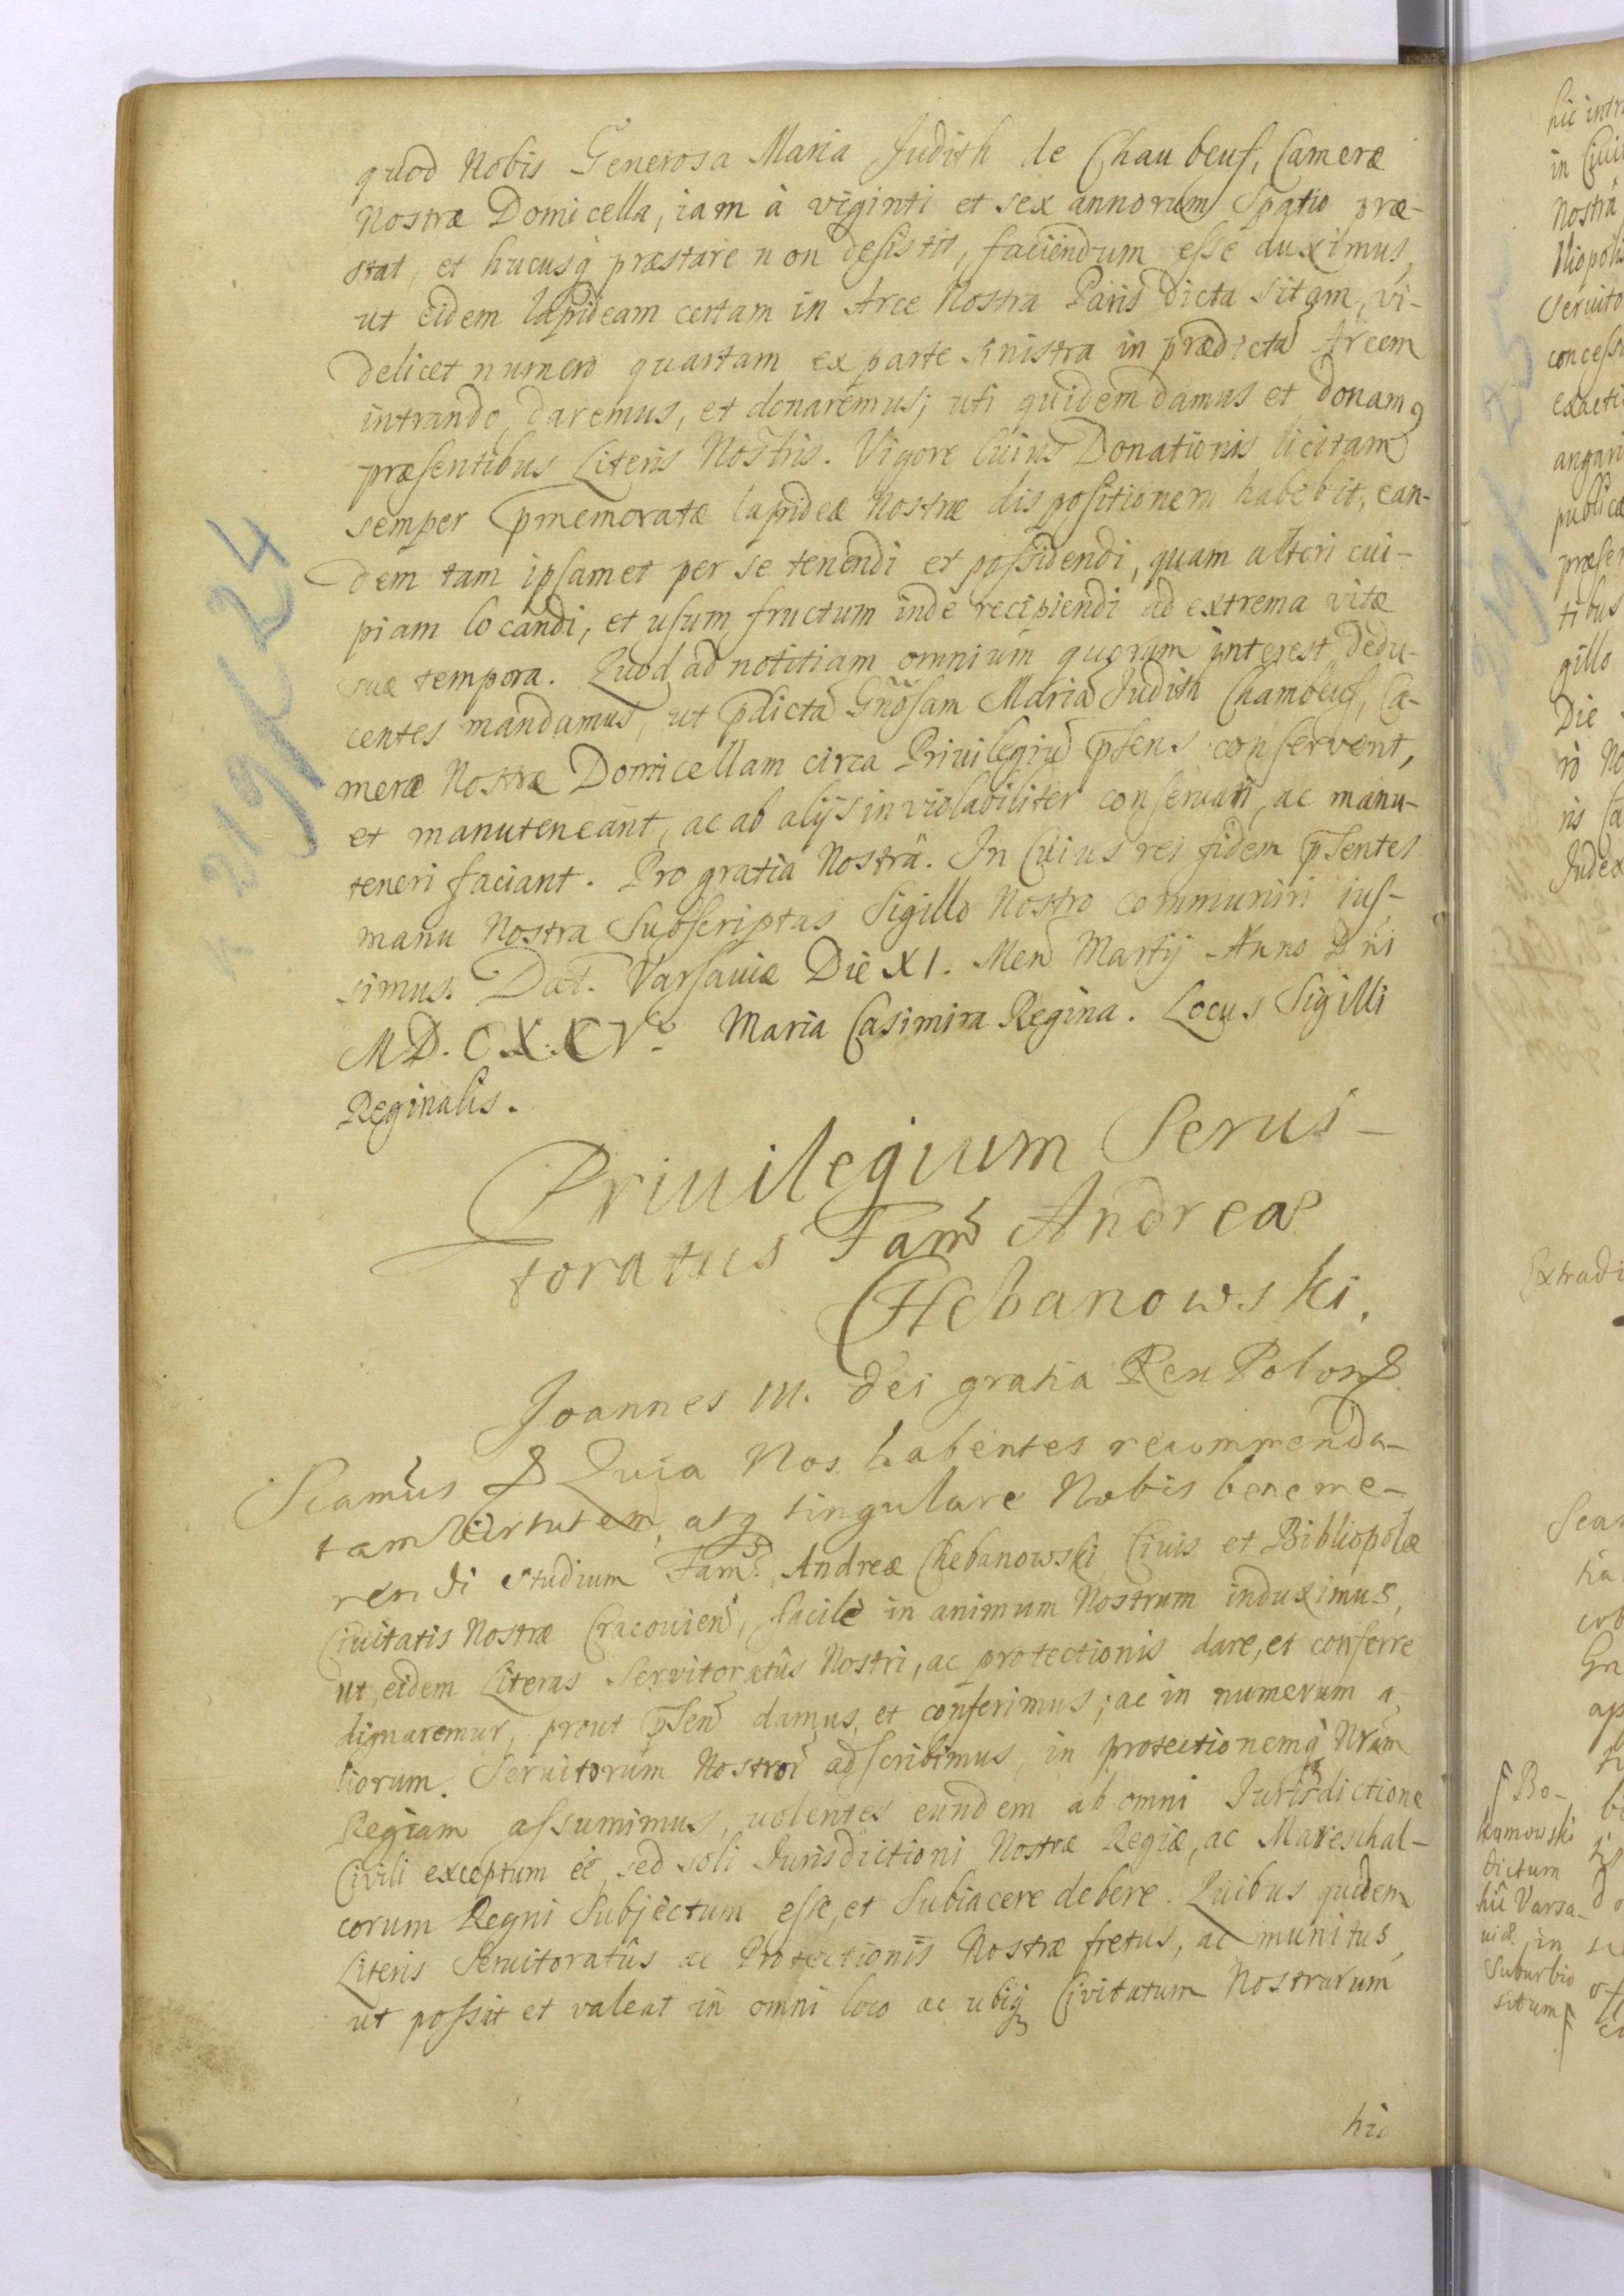 quod Nobis Generosa Maria Judith de Chaubeuf, Cameræ
Nostræ Domicella, iam à viginti et sex annorum Spatio præ-
stat, et hucusq præstare non desistit, faciendum esse duximus,
ut eidem lapideam certam in Arce Nostra Paris dicta sitam, vi-
delicet numero quartam ex parte sinistra in prædictã Arcem
intrando, daremus, et donaremus; uti quidem damus et donamꝰ
præsentibus Literis Nostris. Vigore cuius Donationis licitam
semper p̄memoratæ lapideæ Nostræ dispositionem habebit, ean-
dem tam ipsamet per se tenendi et possidendi, quam alteri cui-
piam locandi, et usum fructum inde recipiendi ad extrema vitæ
suæ tempora. Quod ad notitiam omnium quorum interest dedu-
centes mandamus, ut p̄dictã Gñosam Mariã Judith Chambeuf, Ca-
meræ Nostræ Domicellam circa Priuilegiũ p̄sens conservent,
et manuteneant, ac ab alijs inviolabiliter conseruari, ac manu-
teneri faciant. Pro gratia Nostra. In Cuius rei fidem p̄sentes
manu Nostra Subscriptas Sigillo Nostro communiri ius-
simus. Dat. Varsauiæ Die XI. Men Martij Anno Dni
MD.CXXCVo. Maria Casimira Regina. Locus Sigilli
Reginalis.
Priuilegium Serui-
toratus Fam Andreæ
CHebanowski.
Joannes III. dei gratia Rex Polon &
Scamus & Quia Nos habentes recommenda-
tam virtutem, atq singulare Nobis beneme-
rendi studium Fam. Andreæ Chebanowski Ciuis et Bibliopolæ
Ciuitatis Nostræ Cracouien, facilè in animum Nostrum induximus,
ut eidem Literas Servitoratûs Nostri, ac protectionis dare, et conferre
dignaremur, prout p̄sen damus et conferimus; ac in numerum a-
liorum Seruitorum Nostror adscribimus, in protectionemq Nram
Regiam assumimus, uolentes eundem ab omni Jurisdictione
Civili exceptum eê, sed soli Jurisdictioni Nostræ Regiæ, ac Mareschal-
corum Regni Subjectum esse, et Subiacere debere. Quibus quidem
Literis Seruitoratûs ac Protectionis Nostræ fretus, ac munitus,
ut possit et valeat in omni loco ac ubiq Civitatum Nostrarum
hic